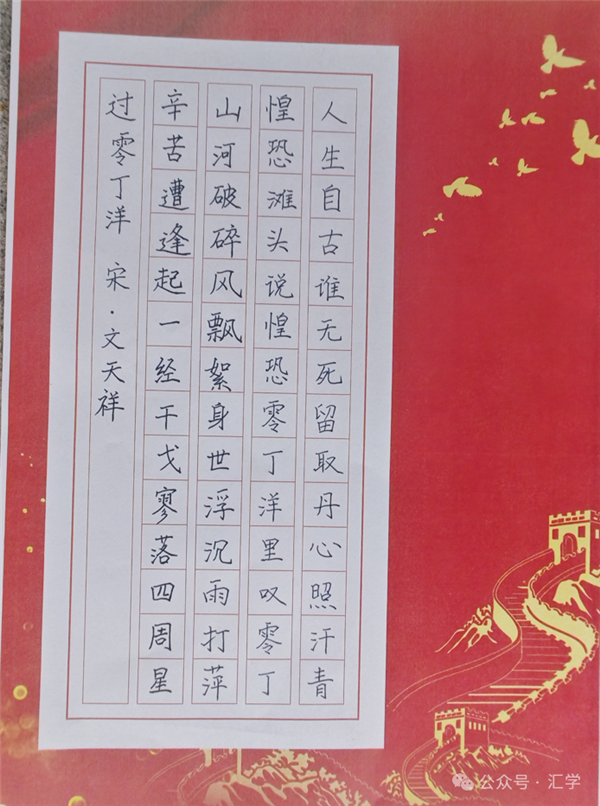 过零丁洋 宋·文天祥
辛苦遭逢起一经干戈寥落四周星
山河破碎风飘絮身世浮沉雨打萍
惶恐滩头说惶恐零丁洋里叹零丁
人生自古谁无死留取丹心照汗青
公众号·汇学